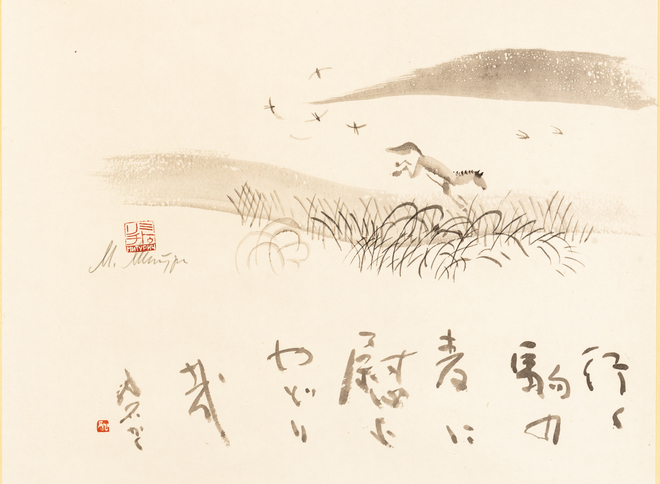 行く
駒の
麦に
慰む
やどり
哉